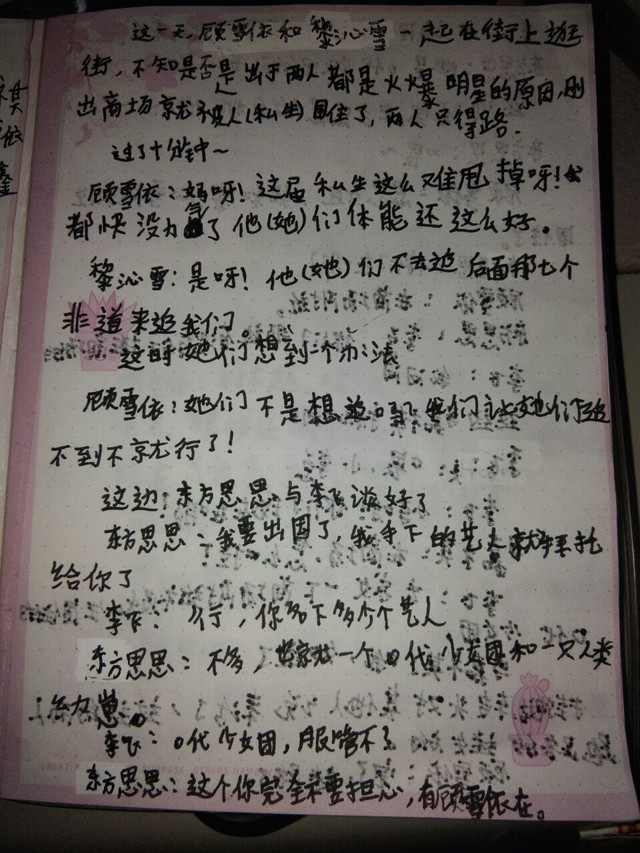 这一天,顾雪依和黎沁雪一起在街上逛
街,不知是否是出于两人都是火爆明星的原因,刚
出商场就被人(私生)围住了,两人只得路.
过了十分钟~
顾雪依:妈呀!这届私生这么难甩掉呀!我
都快没力气了他(她)们体能还这么好.
黎沁雪:是呀!他(她)们不去追后面那七个
非道来追我们。
这时她们想到一个办法
顾雪依:她们不是想追吗?我们让她们追
不到不就行了!
这边:东方思思与李飞谈好了
东方思思:我要出国了,我手下的艺人就拜托
给你了
李飞:行,你名下多少个艺人
东方思思:不多,一个口代少女团和一只人类
幼崽。
李飞:口代少女团,服管不了
东方思思:这个你完全不要担心,有顾雪依在。